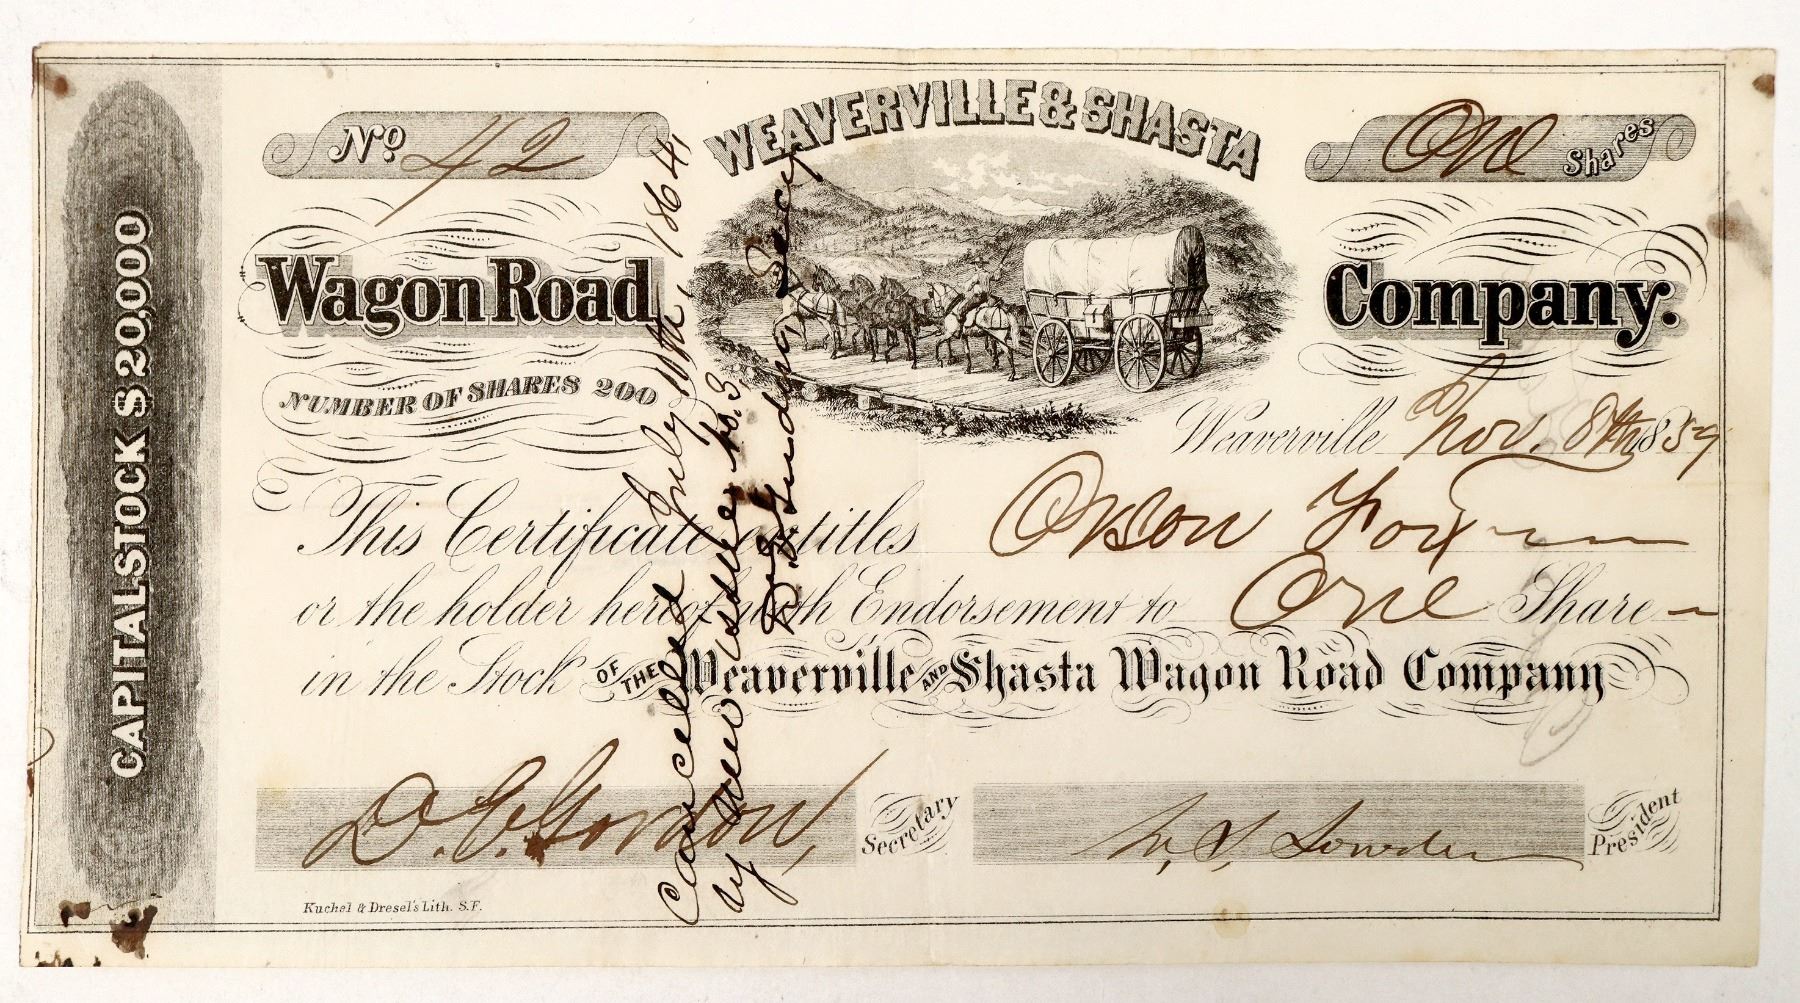 WEAVERVILLE & SHASTA
No. 42
One Shares
Wagon Road
Company.
NUMBER OF SHARES 200
CAPITAL STOCK $20,000
Weaverville Nov. 8th 1859
This Certificate entitles Orson Fox
or the holder hereof with Endorsement to One Share
in the Stock OF THE Weaverville AND Shasta Wagon Road Company
D. E. Gordon, Secretary
W. S. Lowden President
Kuchel & Dresel's Lith. S.F.
Cancelled July 10th, 1864,
by New issue No. 3.
Secy